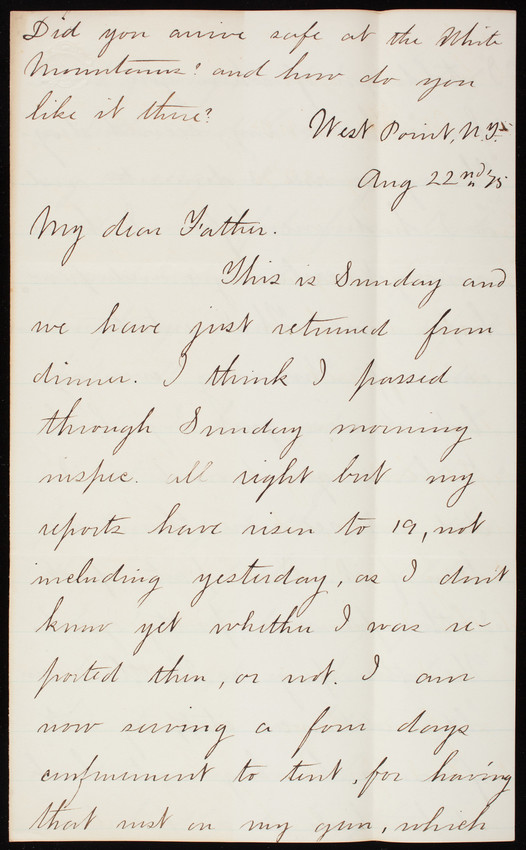 Did you arrive safe at the White
Mountains? and how do you
like it there?
West Point, N.Y.
Aug 22nd '75
My dear Father.
This is Sunday and
we have just returned from
dinner. I think I passed
through Sunday morning
inspec. all right but my
reports have risen to 19, not
including yesterday, as I don't
know yet whether I was re-
ported then, or not. I am
now serving a four days
confinement to tent, for having
that rust on my gun, which